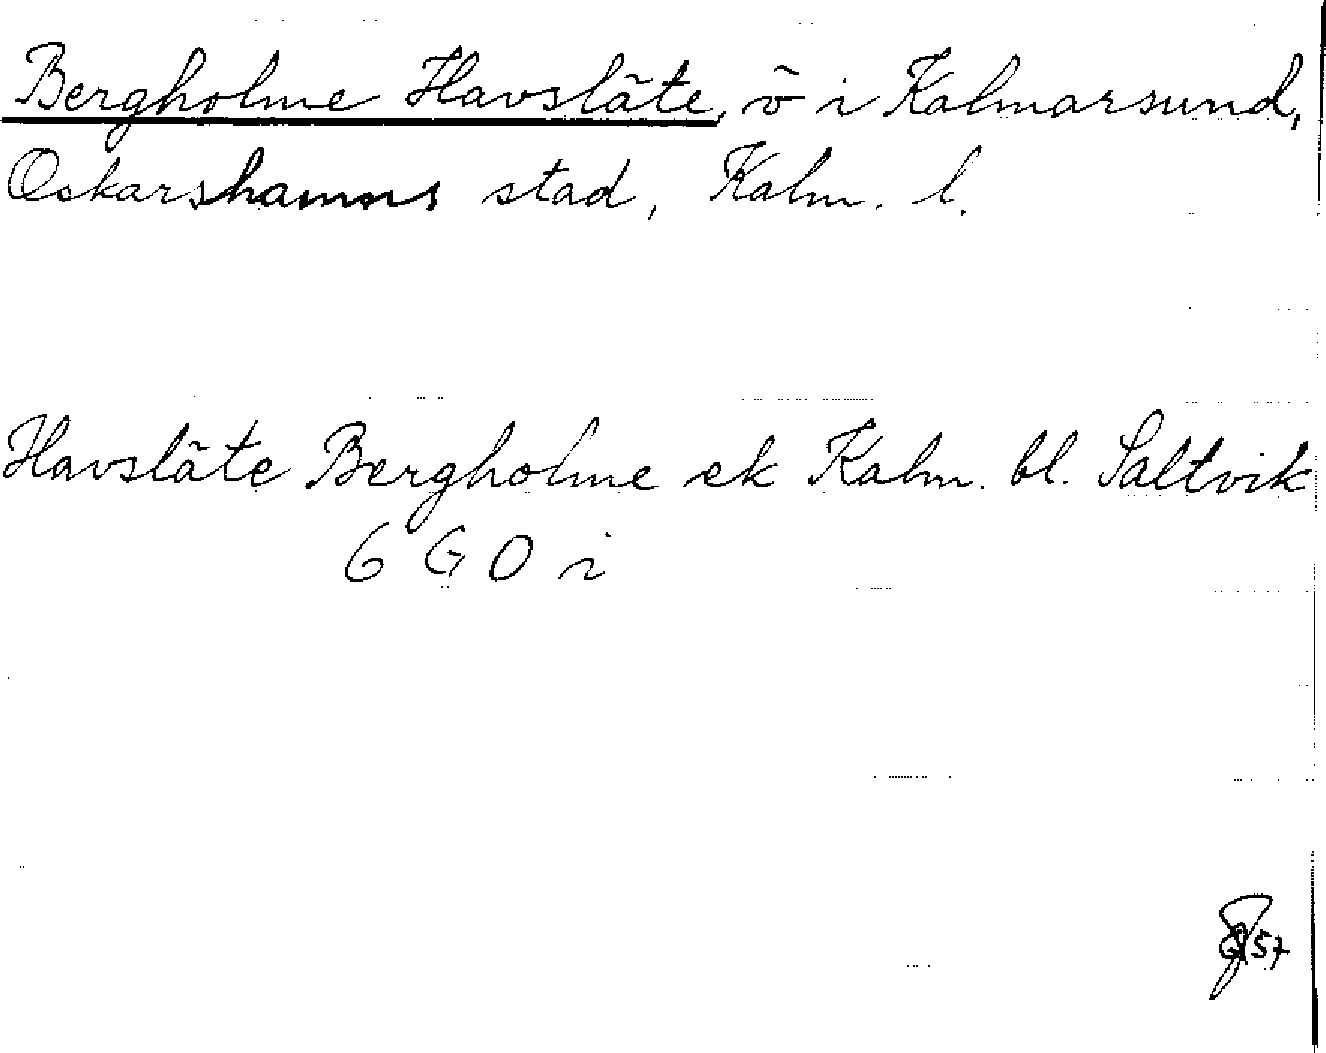 Bergholme Havsläte, ö i Kalmarsund,
Oskarshamns stad, Kalm. l.
Havsläte Bergholme ek Kalm. bl. Saltvik
6 G O i
57